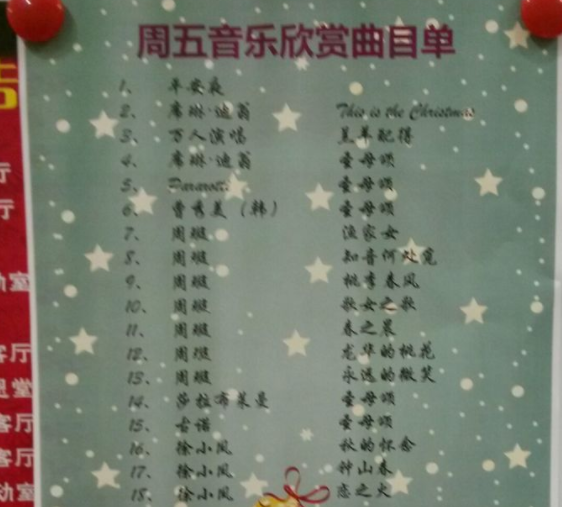 周五音乐欣赏曲目单
1、 平安夜
2、 席琳·迪翁 This is the Christmas
3、 万人演唱 羔羊配得
4、 席琳·迪翁 圣母颂
5、 Pavarotti 圣母颂
6、 曹秀美（韩） 圣母颂
7、 周璇 渔家女
8、 周璇 知音何处觅
9、 周璇 桃李春风
10、 周璇 歌女之歌
11、 周璇 春之晨
12、 周璇 龙华的桃花
13、 周璇 永远的微笑
14、 莎拉布莱曼 圣母颂
15、 古诺 圣母颂
16、 徐小凤 秋的怀念
17、 徐小凤 钟山春
18、 徐小凤 恋之火
厅
厅
动室
客厅
客厅
客厅
动室